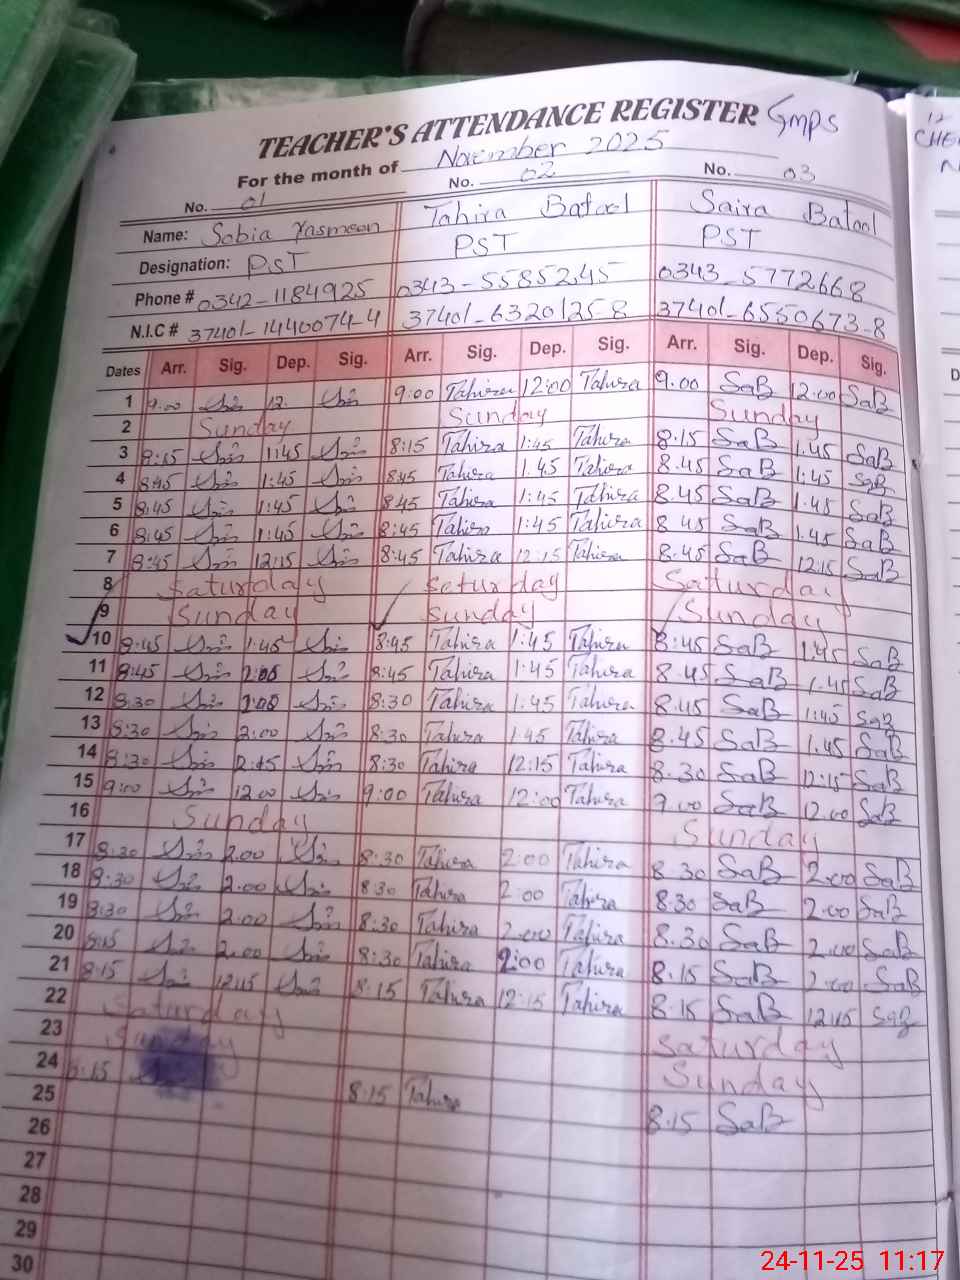 TEACHER'S ATTENDANCE REGISTER Gmps
For the month of November 2025
No. 01 No. 02 No. 03
Name: Sobia Yasmeen Tahira Batool Saira Batool
Designation: PST PST PST
Phone # 0342-1184925 0343-5585245 0343-5772668
N.I.C # 37401-1440074-4 37401-6320125-8 37401-6550673-8
Dates Arr. Sig. Dep. Sig. Arr. Sig. Dep. Sig. Arr. Sig. Dep. Sig.
1 9:00 12: 9:00 Tahira 12:00 Tahira 9:00 SaB 12:00 SaB
2 Sunday Sunday Sunday
3 8:15 1:45 8:15 Tahira 1:45 Tahira 8:15 SaB 1:45 SaB
4 8:45 1:45 8:45 Tahira 1:45 Tahira 8:45 SaB 1:45 SaB
5 8:45 1:45 8:45 Tahira 1:45 Tahira 8:45 SaB 1:45 SaB
6 8:45 1:45 8:45 Tahira 1:45 Tahira 8:45 SaB 1:45 SaB
7 8:45 12:15 8:45 Tahira 12:15 Tahira 8:45 SaB 12:15 SaB
8 Saturday Saturday Saturday
9 Sunday Sunday Sunday
10 8:45 1:45 8:45 Tahira 1:45 Tahira 8:45 SaB 1:45 SaB
11 8:45 2:00 8:45 Tahira 1:45 Tahira 8:45 SaB 1:45 SaB
12 8:30 2:00 8:30 Tahira 1:45 Tahira 8:45 SaB 1:45 SaB
13 8:30 2:00 8:30 Tahira 1:45 Tahira 8:45 SaB 1:45 SaB
14 8:30 8:30 Tahira 12:15 Tahira 8:30 SaB 12:15 SaB
15 9:00 12:00 9:00 Tahira 12:00 Tahira 9:00 SaB 12:00 SaB
16 Sunday Sunday
17 8:30 2:00 8:30 Tahira 2:00 Tahira 8:30 SaB 2:00 SaB
18 8:30 2:00 8:30 Tahira 2:00 Tahira 8:30 SaB 2:00 SaB
19 8:30 2:00 8:30 Tahira 2:00 Tahira 8:30 SaB 2:00 SaB
20 8:15 2:00 8:30 Tahira 2:00 Tahira 8:15 SaB 2:00 SaB
21 8:15 12:15 8:15 Tahira 12:15 Tahira 8:15 SaB 12:15 SaB
22 Saturday Saturday
23 Sunday Sunday
24 8:15 8:15 Tahira 8:15 SaB
25
26
27
28
29
30
12
24-11-25 11:17